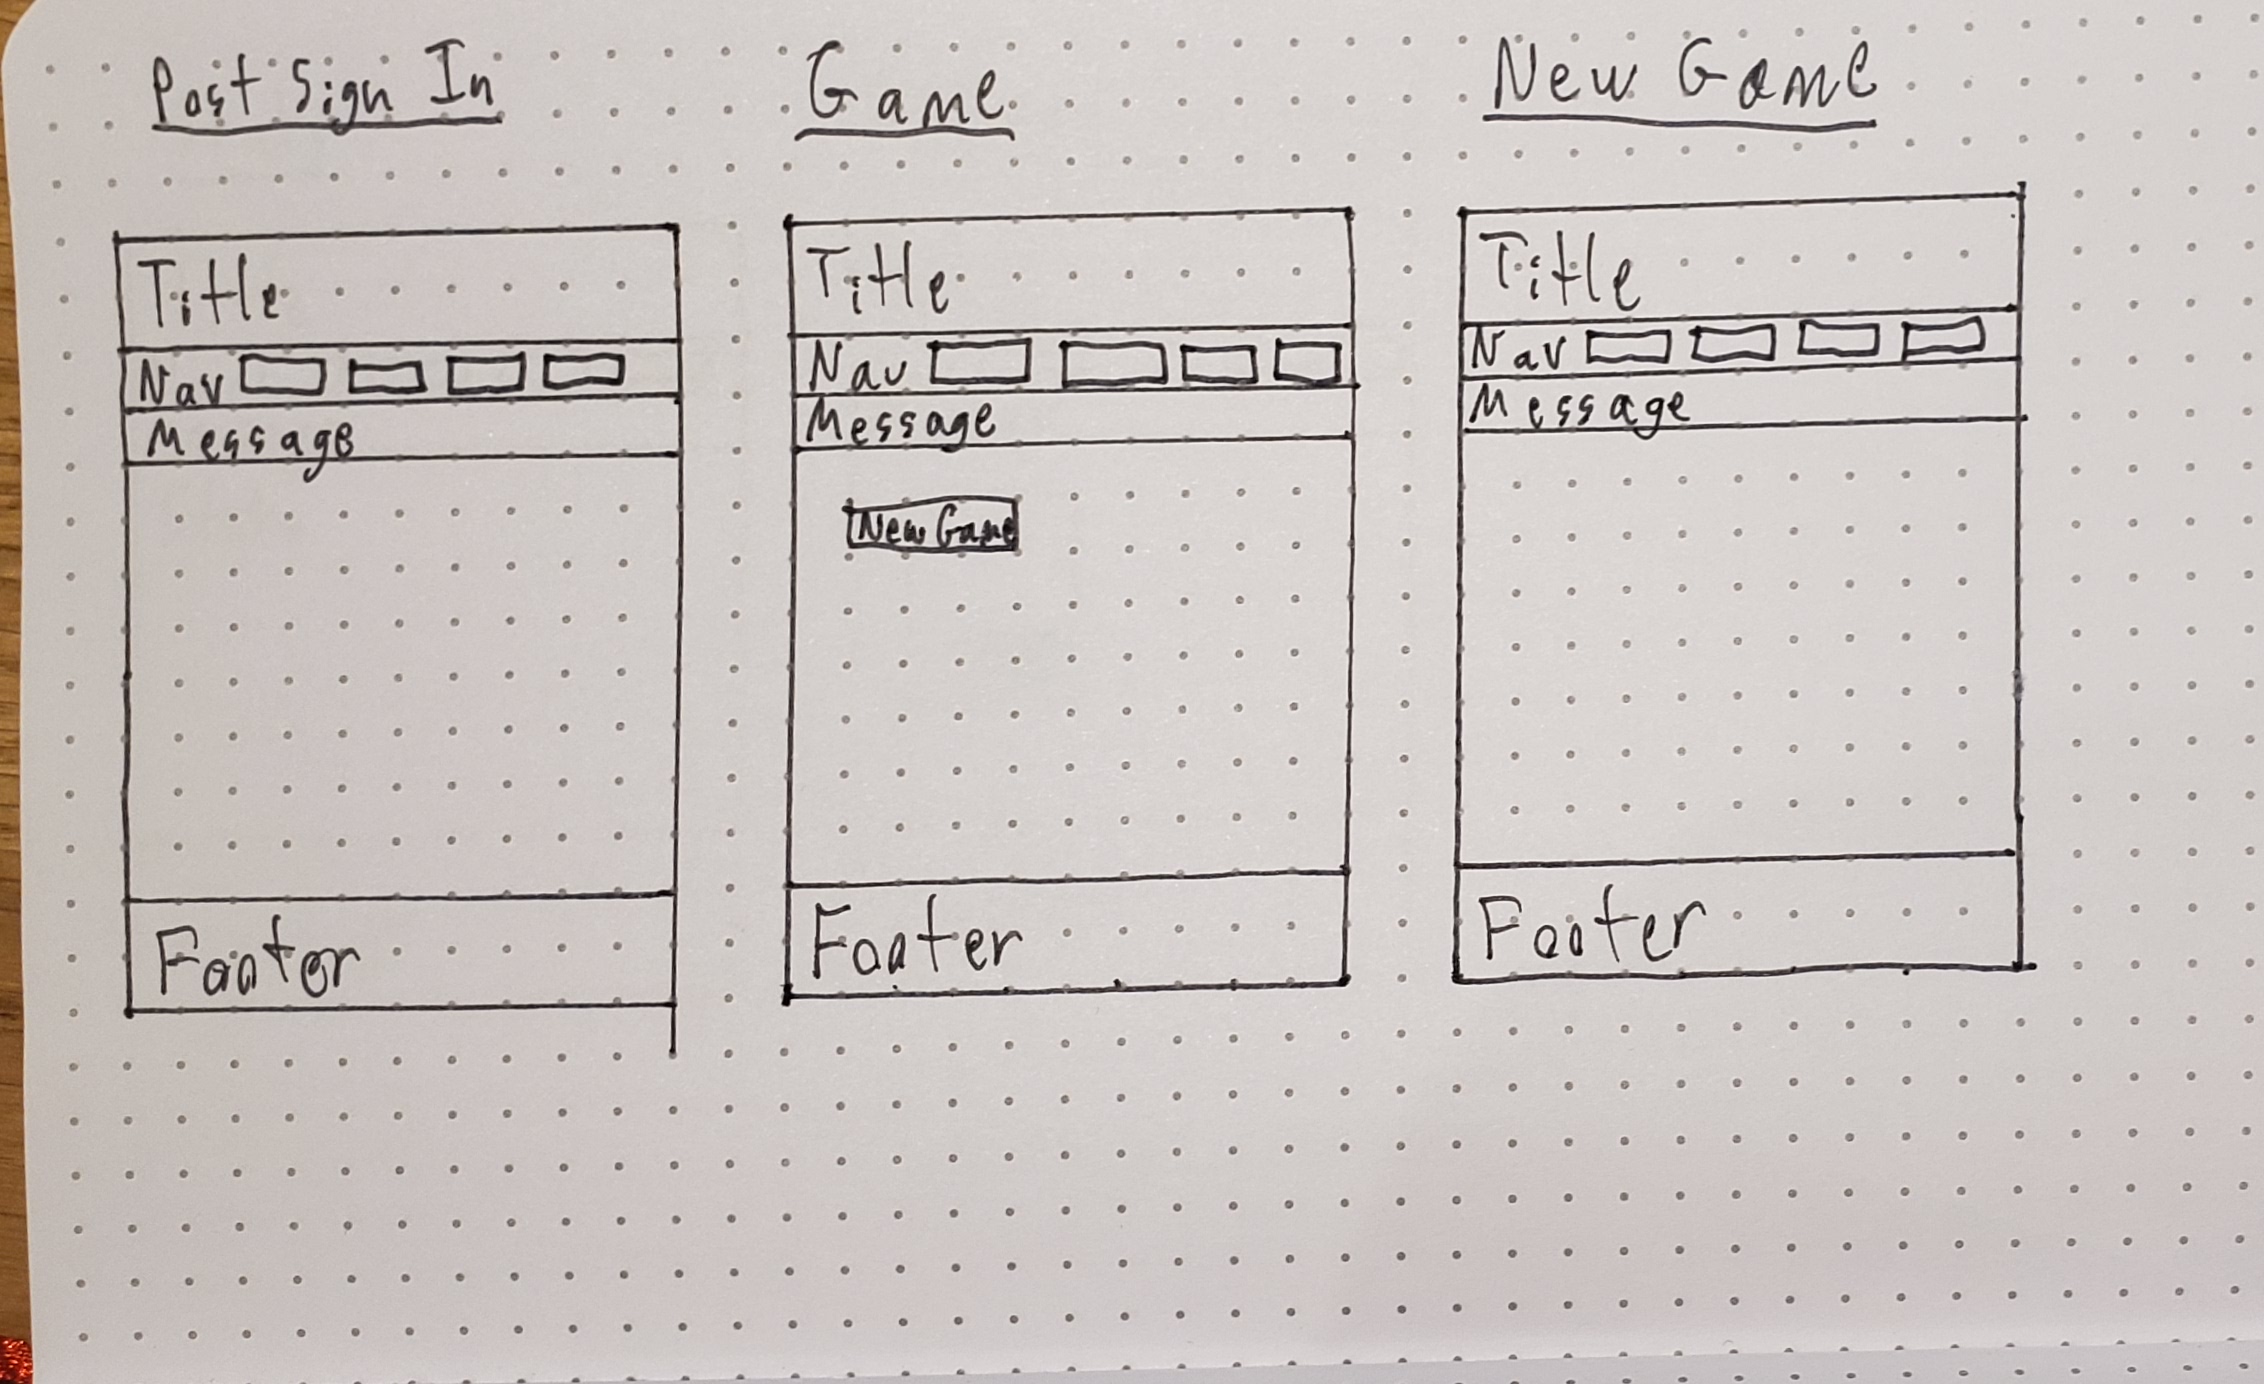 Post Sign In
Title
Nav
Message
Footer
Game
Title
Nav
Message
New Game
Footer
New Game
Title
Nav
Message
Footer